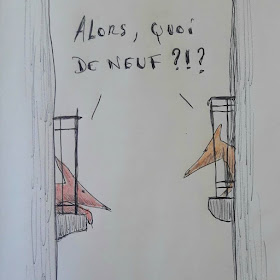 ALORS, QUOI
DE NEUF ?!?